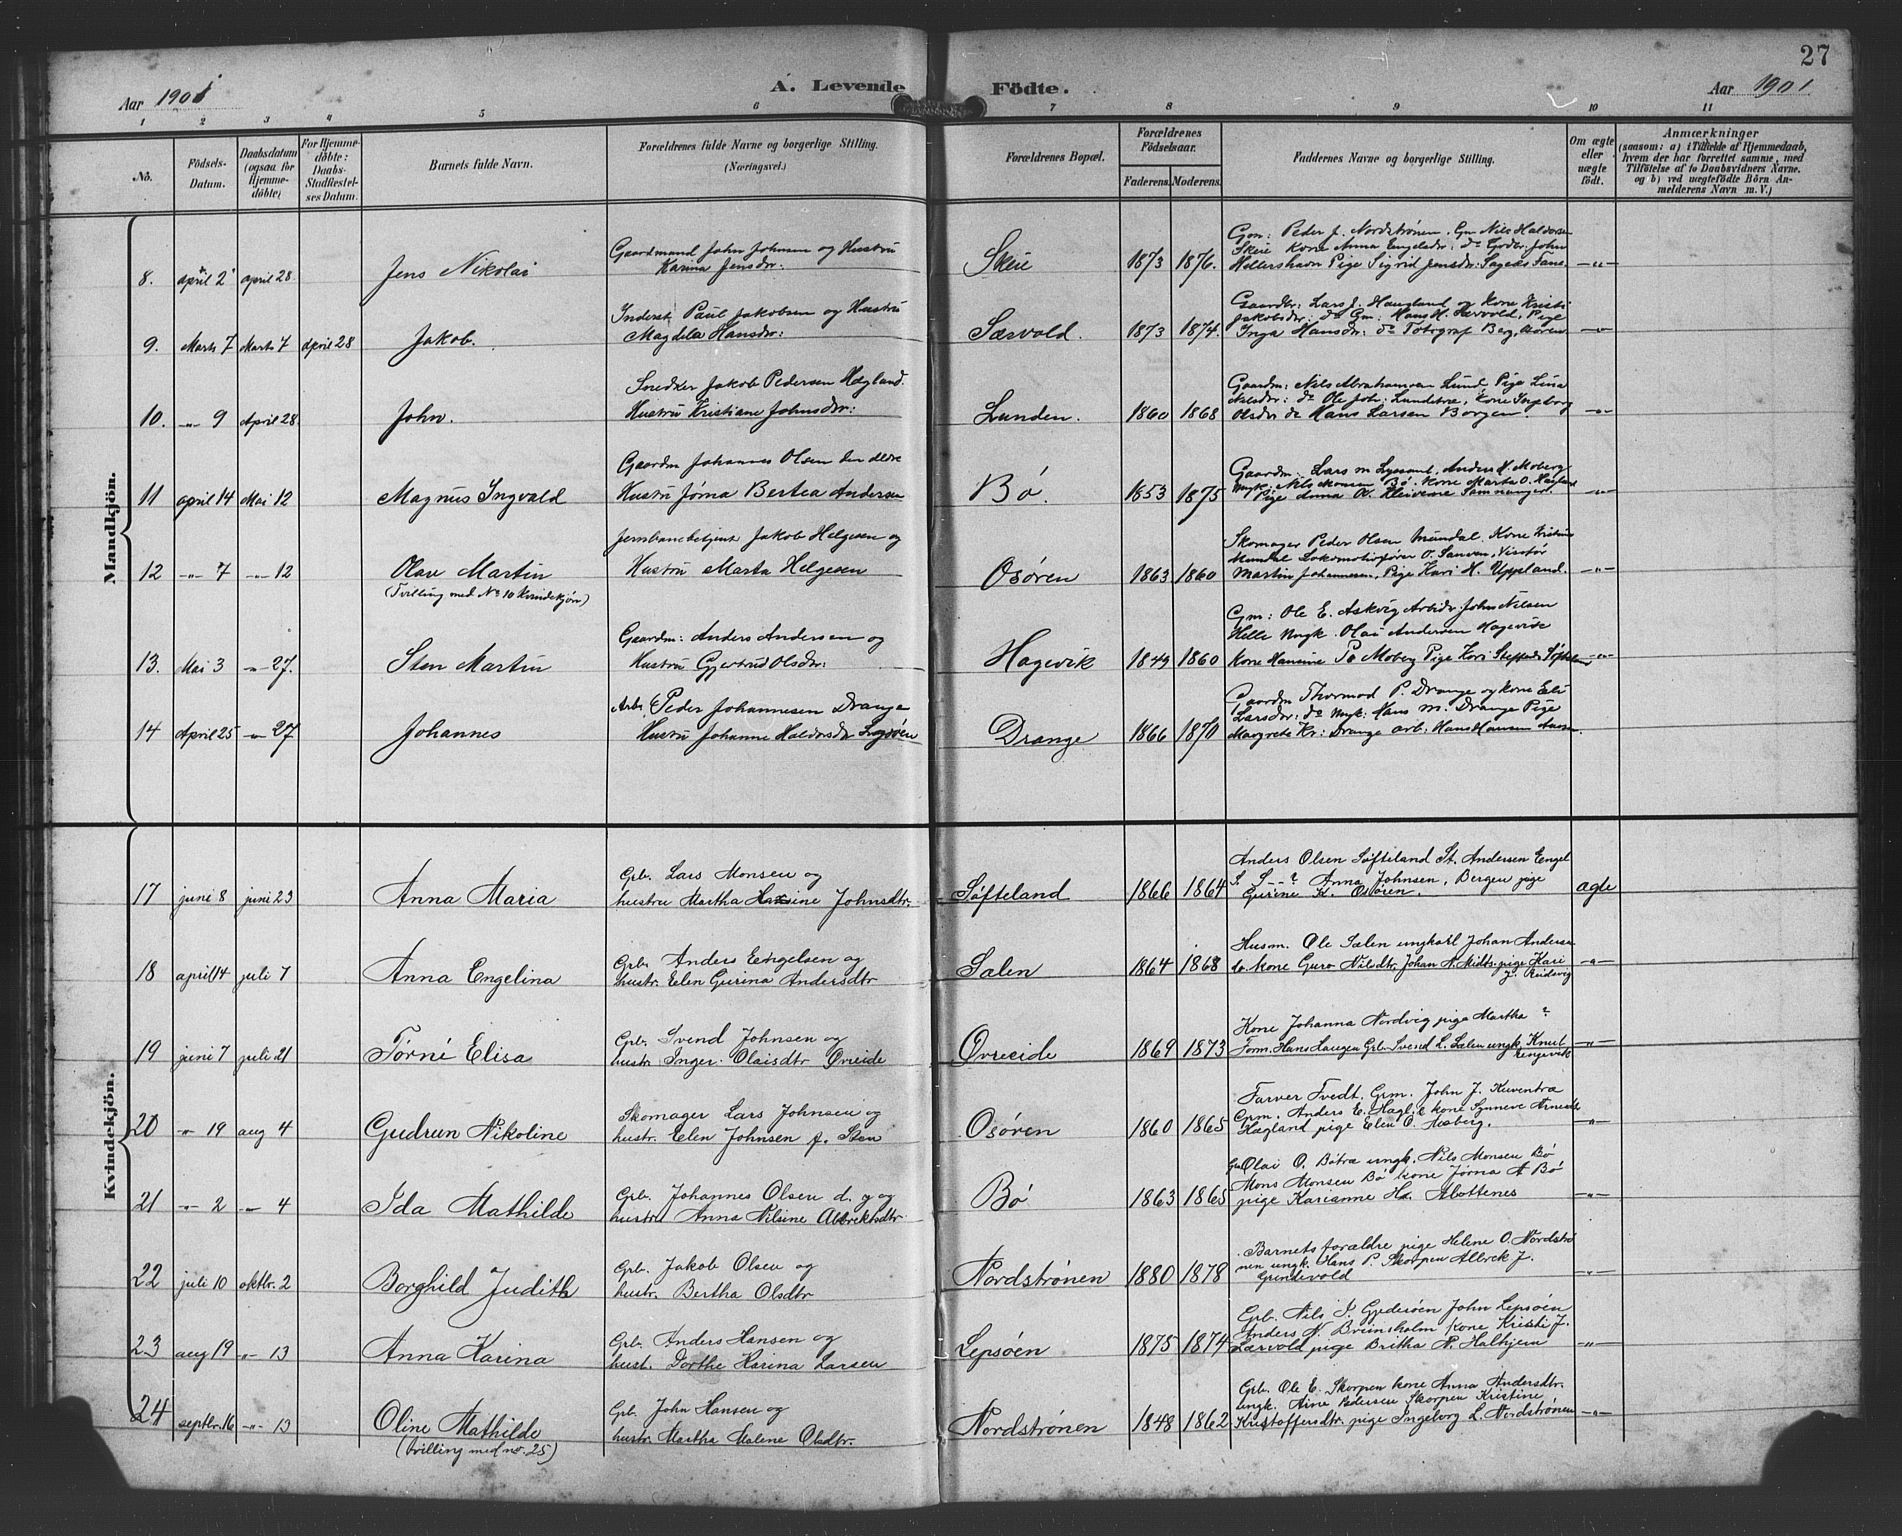 27
Aar 1901
A. Levende Födte.
Aar 1901
1 2 3 4 5 6 7 8 9 10 11
No.
Födsels-Datum.
Daabsdatum (ogsaa for Hjemme-döbte)
For Hjemme-döbte: Daabs-Stadfæstel-ses Datum.
Barnets fulde Navn.
Forældrenes fulde Navne og borgerlige Stilling.
(Næringsvei.)
Forældrenes Bopæl.
Forældrenes Födselsaar.
Faderens. Moderens.
Faddernes Navne og borgerlige Stilling.
Om ægte eller uægte födt.
Anmærkninger
(saasom: a) i Tilfælde af Hjemmedaab,
hvem der har forrettet samme, med
Tilföielse af to Daabsvidners Navne.
og b) ved uægtefödte Börn An-
melderens Navn m. V.)
Mandkjön.
Gaardmand John Johnsen og Hustru
Karina Jensdr:
8. april 2 april 28 Jens Nikolai Skeie 1873 1876. —"—
Gm: Peder J. Nordstrønen, Gm Nils Haldorsen
Skeie Kone Anna Engelsdr: do Gbr: John
Hillershavn Pige Sigrid Jensdr:
Inderst Paul Jakobsen og Hustru
Magdela Hansdr:
9. Marts 7 Marts 7 april 28 Jakob. Særvold. 1873 1874. —"—
Gaardbr: Lars J. Haugland og Kone Kristi
Jakobsdr: do Gm: Hans H. Særvold, Pige
Inga Hansdr: do Fotograf Berg, Osøren
Snedker Jakob Pedersen Hægland.
Hustru Kristiane Johnsdr:
10. —"— 9 April 28. John. Lunden. 1860 1868 —"—
Gaardm: Nils Abrahamsen Lund Pige Lina
Nilsdr: do Ole Joh: Lundetræ, Kone Ingeborg
Olsdr do Hans Larsen Borgen.
Gaardm Johannes Olsen den ældre
Hustru Jørna Bertea Andersen
11 april 14 Mai 12 Magnus Ingvald Bø. 1853 1875 —"—
Gaardm: Lars M Lyssand, Anders N. Moberg
Ungk: Nils Monsen Bø. Kone Marta O. Hægland
Pige Anna O. Kleivene Samnanger.
Jernbanebetjent Jakob Helgesen og
Hustru Marta Helgesen
12 —"— 7 —"— 12 Olav Martin Osøren 1863 1860 —"—
(Tvilling med No 10 Kvindekjøn)
Skomager Peder Olsen Mundal Kone Kristine
Mundal Lokomotivfører O. Sanven, Visitør
Martin Johannesen, Pige Kari H. Uppland.
Gaardm: Anders Andersen og
Hustru Gjertrud Olsdr:
13. Mai 3 —"— 27. Sten Martin Hagevik 1849 1860 —"—
Gm: Ole E. Askvig Arbidr. John Nilsen
Helle Ungk. Olai Andersen Hagevik
Kone Hansine Po Moberg Pige Kari Steffensd. Søfteland
Arb. Peder Johannesen Drange
Hustru Johanne Haldorsdr
14 April 25 —"— 27 Johannes Drange 1866 1870
Gaardm Thormod P. Drange og kone Eli
Larsdr: do Ungk: Hans M. Drange Pige
Margrete Kr: Drange arb: Hans Hansen Aasen
Kvindekjön.
Grb. Lars Monsen og
hustru Martha Hansine Johnsdtr.
17 juni 8 juni 23 Anna Maria Søfteland 1866 1864 ægte
Anders Olsen Søfteland St. Andersen Engel
S. S---? Anna Johnsen, Bergen pige
Gurine K. Osøren.
Grb. Anders Engelsen og
hustr. Elen Gurina Andersdtr
18 april 14 juli 7 Anna Engelina Sælen 1864 1868 —"—
Husm. Ole Sælen ungkarl Johan Andersen
do. kone Guro Nilsdtr Johan N. Midts. pige Kari
J. Reidvig
Grb. Svend Johnsen og
hustr. Inger Olaisdtr Øvreeide
19 juni 7 juli 21 Tørné Elisa Øvreeide 1869 1873 —"—
Kone Johanna Nordvig pige Martha ?
Form. Hans Haugen Grb. Svend L. Sælen ungk. Knut
Lyngevik
Skomager Lars Johnsen og
hustr. Elen Johnsen f. Sten
20 " 19 aug 4 Gudrun Nikoline Osøren 1860 1865 —"—
Farver Tvedt, Grm. John J. Kuventræ
Grm. Anders E. Hagl. & kone Synneve Arnesdtr
Hægland pige Elen O. Moberg.
Grb. Johannes Olsen d. y og
hustru Anna Nilsine Albrektsdtr
21 —"— 2 —"— 4 Ida Mathilde Bø 1863 1865 —"—
Gm Olai O. Bøtræ ungk. Nils Monsen Bø
Mons Monsen Bø kone Jørna A Bø
pige Karianne H. Flottenes
Grb. Jakob Olsen og
hustr. Bertha Olsdtr
22 juli 10 oktbr. 2 Borghild Judith Nordstrønen 1880 1878 —"—
Barnets forældre pige Helene O. Nordstrø
nen ungk. Hans P. Skorpen Albrek J.
Grindevold
Grb. Anders Hansen og
hust. Dorthe Karina Larsen
23 aug 19 —"— 13 Anna Karina Lepsøen 1875 1874 —"—
Grb. Nils J. Gjedesøen John Lepsøen
Anders N. Bruinsholm kone Kristi J.
Særvold pige Britha N. Halhjem
Grb. John Hansen og
hustr. Martha Malene Olsdtr.
24 septbr. 16 —"— 13 Oline Mathilde Nordstrønen 1848 1862 —"—
(tvilling med no. 25)
Grb. Ole E. Skorpen kone Anna Andersdtr.
ungk. Arne Pedersen Skorpen Kristine
Kristoffersdtr. pige Ingeborg L. Nordstrønen